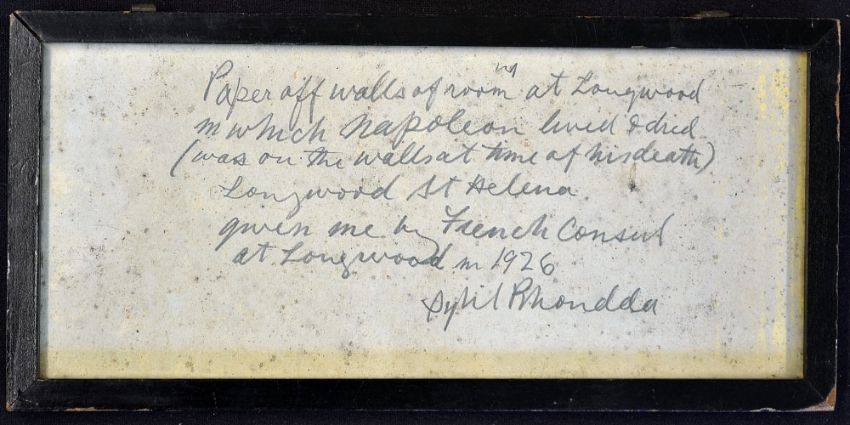 Paper off walls of room at Longwood
in which Napoleon lived & died
(was on the walls at time of his death)
Longwood St Helena
given me by French Consul
at Longwood in 1926
Sybil Rhondda